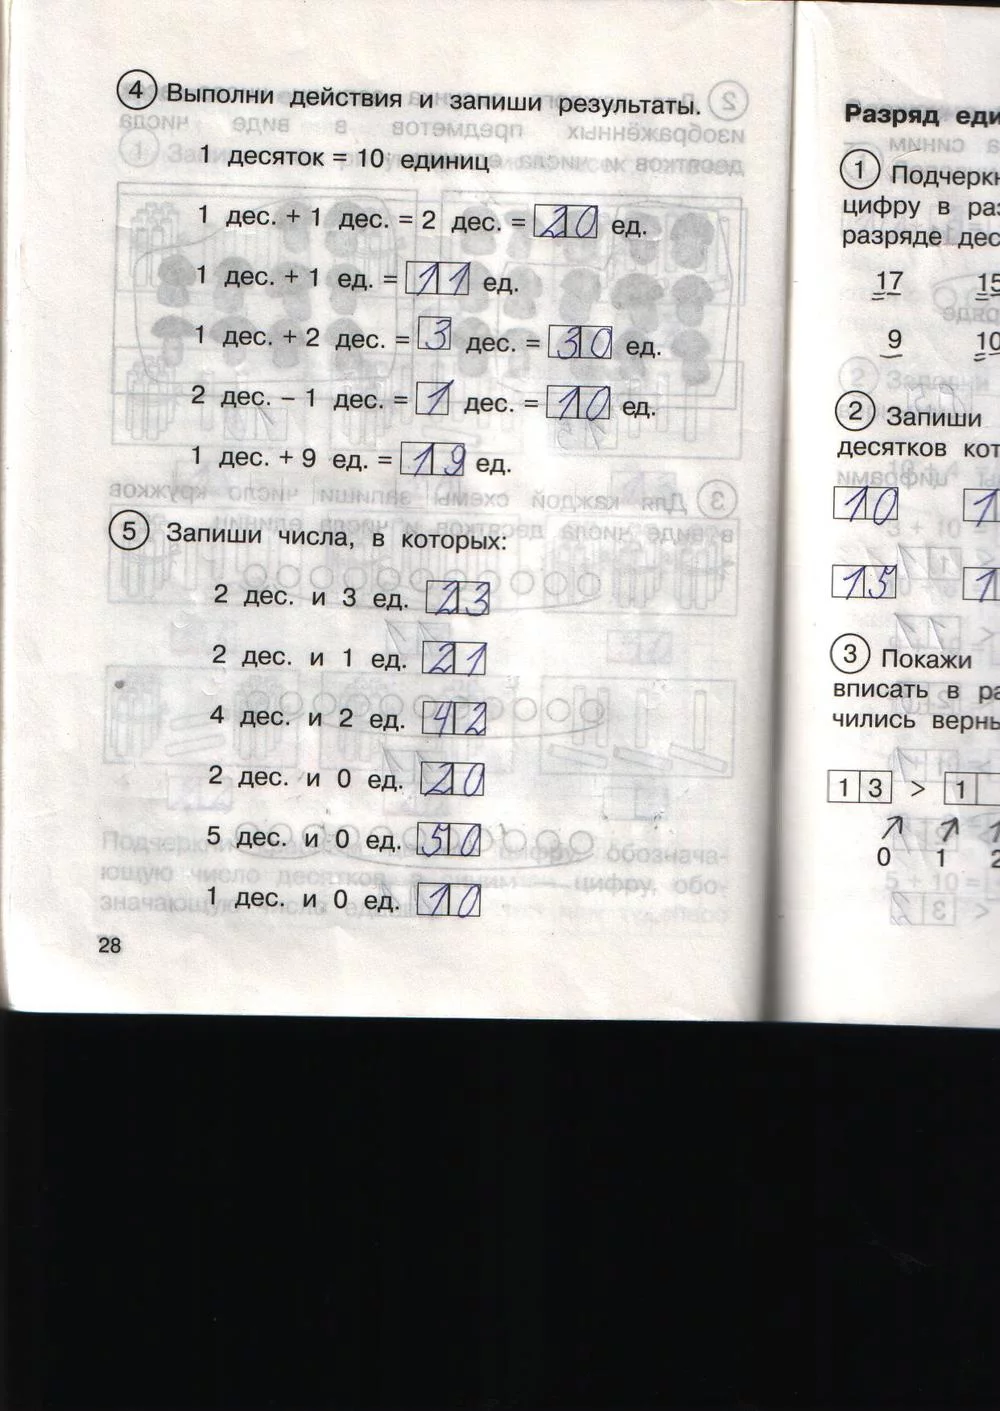 4 Выполни действия и запиши результаты.
1 десяток = 10 единиц
1 дес. + 1 дес. = 2 дес. = 20 ед.
1 дес. + 1 ед. = 11 ед.
1 дес. + 2 дес. = 3 дес. = 30 ед.
2 дес. – 1 дес. = 1 дес. = 10 ед.
1 дес. + 9 ед. = 19 ед.
5 Запиши числа, в которых:
2 дес. и 3 ед. 23
2 дес. и 1 ед. 21
4 дес. и 2 ед. 42
2 дес. и 0 ед. 20
5 дес. и 0 ед. 50
1 дес. и 0 ед. 10
28
Разряд еди
1 Подчеркн
цифру в раз
разряде дес
17 15
9 10
2 Запиши
десятков кот
10 1
15 1
3 Покажи
вписать в ра
чились верны
13 > 1
0 1 2